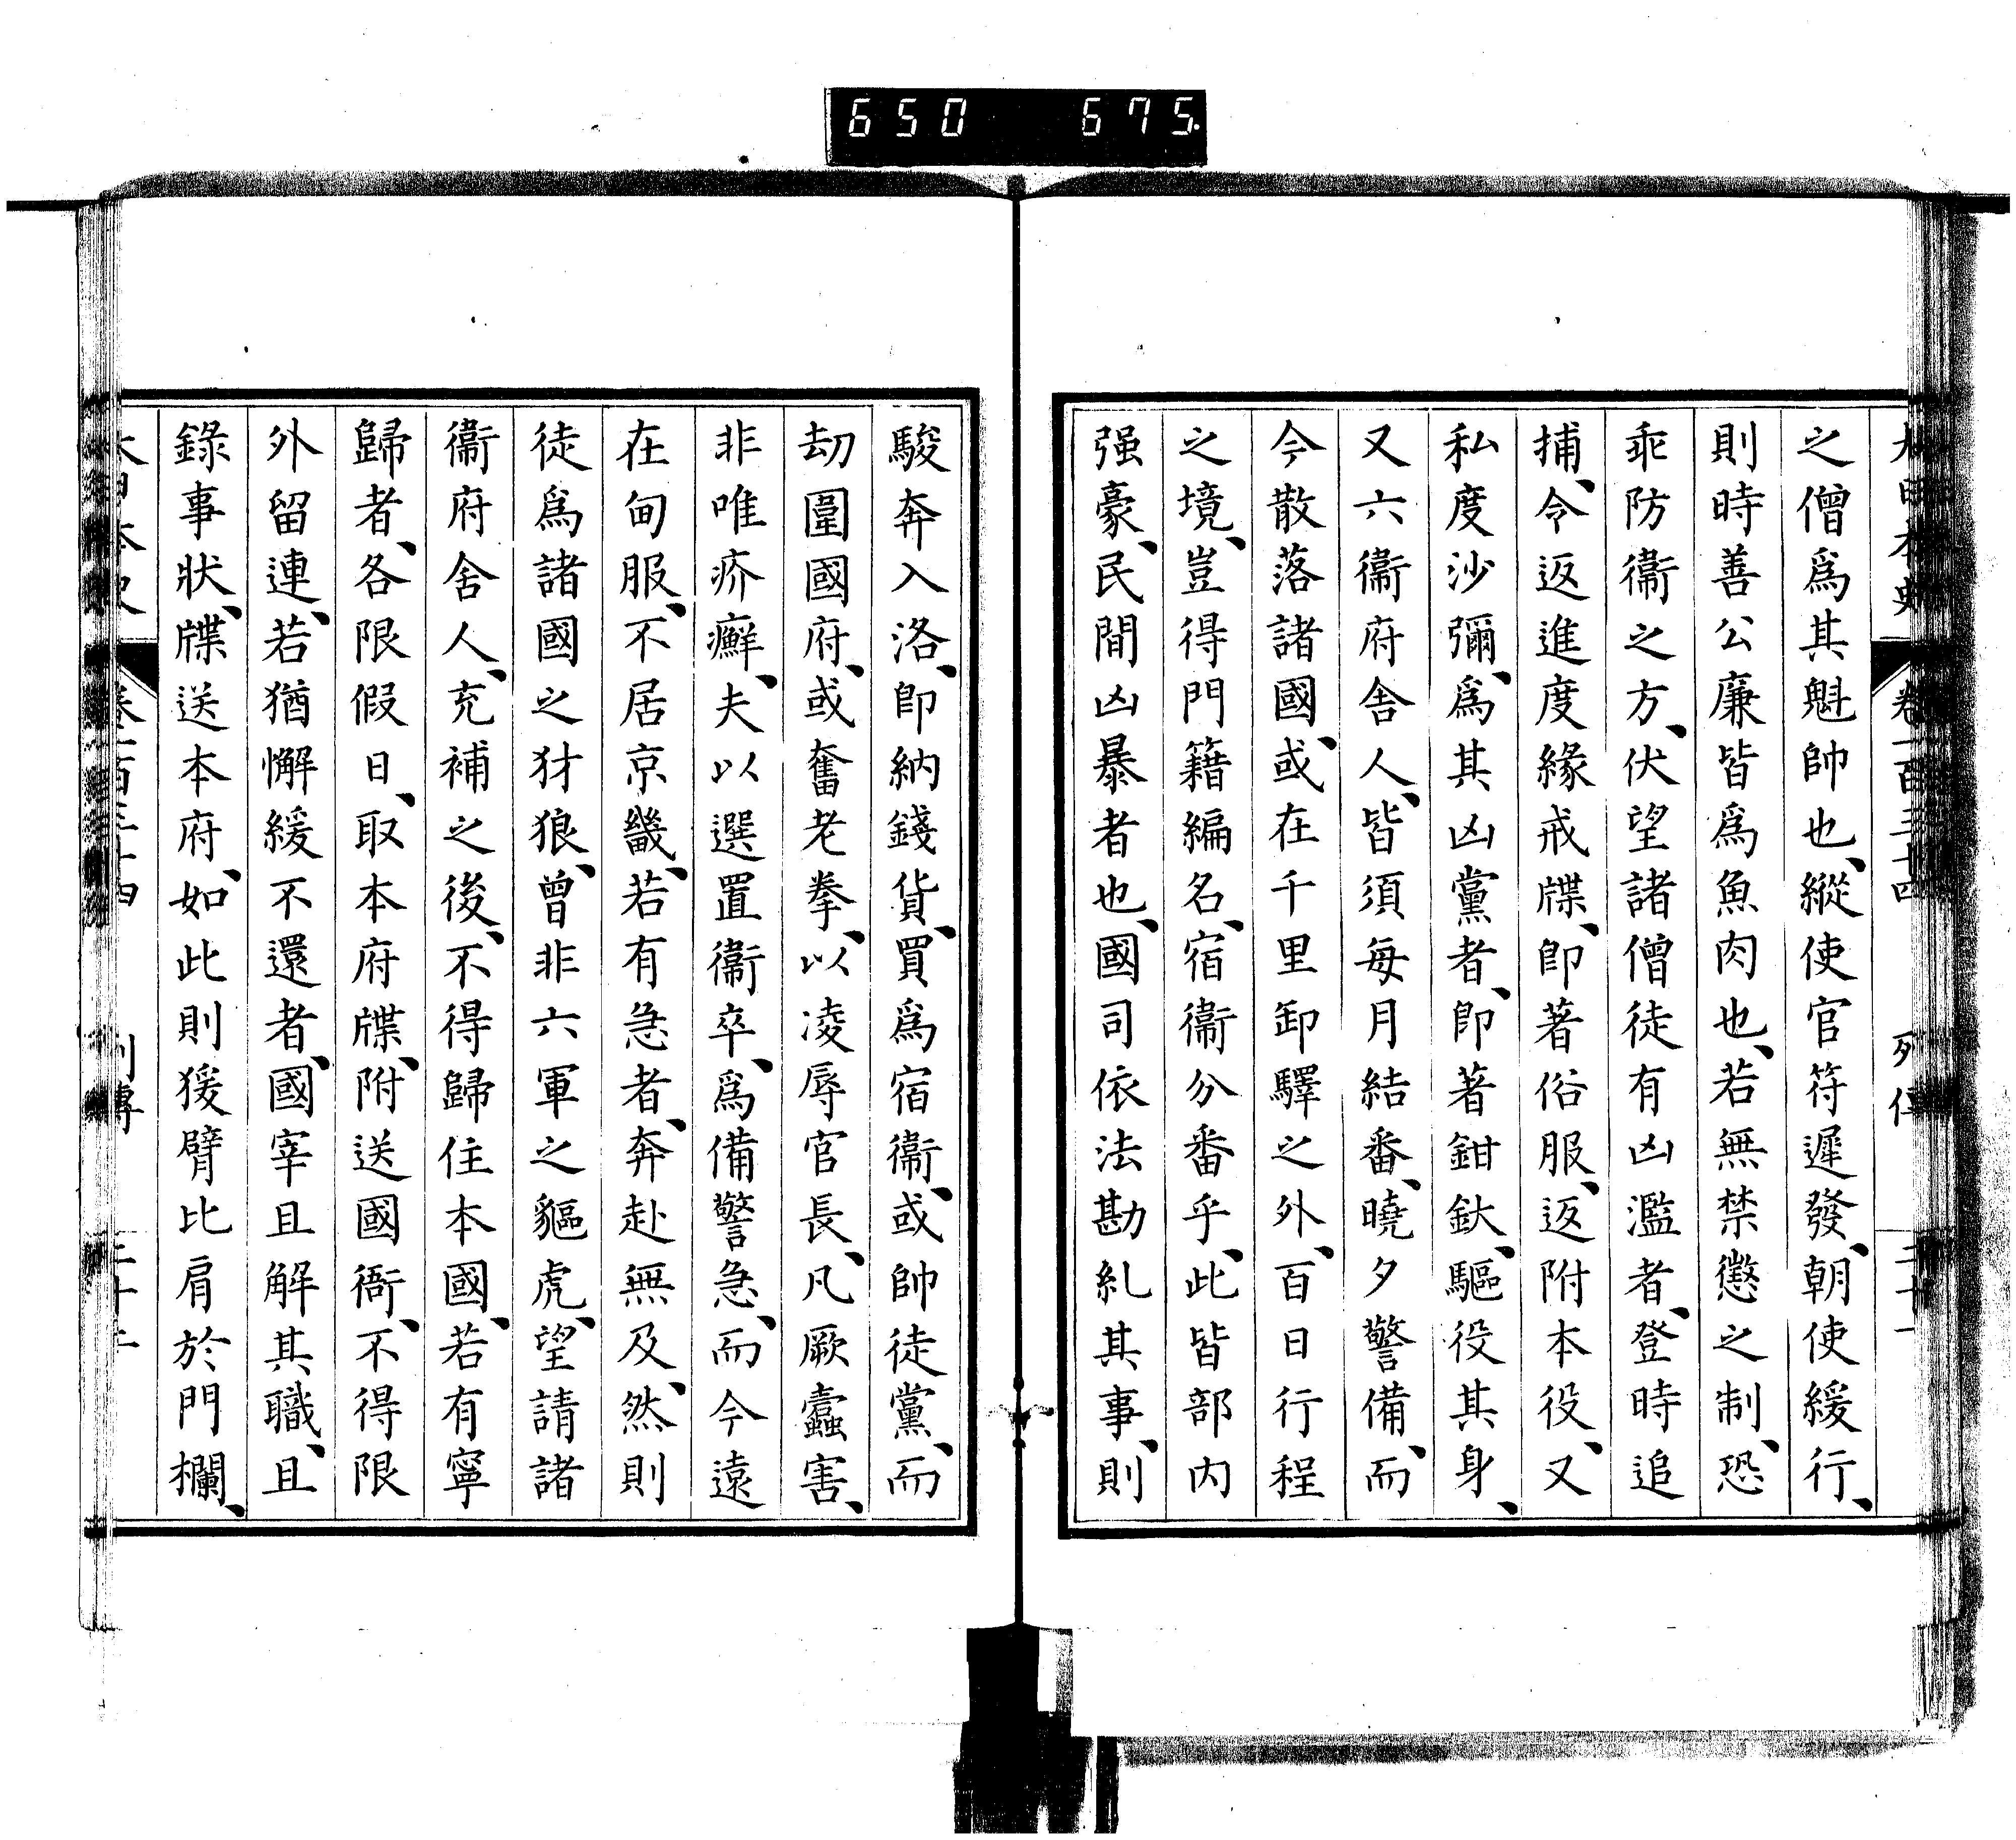 650 675.
大日本史 卷一百三十四 列傳 二十一
之僧爲其魁帥也、縱使官符遲發、朝使緩行、
則時善公廉皆爲魚肉也、若無禁懲之制、恐
乖防衞之方、伏望諸僧徒有凶濫者、登時追
捕、令返進度緣戒牒、卽著俗服、返附本役、又
私度沙彌、爲其凶黨者、卽著鉗釱、驅役其身、
又六衞府舍人、皆須每月結番、曉夕警備、而
今散落諸國、或在千里卸驛之外、百日行程
之境、豈得門籍編名、宿衞分番乎、此皆部內
强豪、民間凶暴者也、國司依法勘糺其事、則
駿奔入洛、卽納錢貨、買爲宿衞、或帥徒黨、而
劫圍國府、或奮老拳、以凌辱官長、凡厥蠹害、
非唯疥癬、夫以選置衞卒、爲備警急、而今遠
在甸服、不居京畿、若有急者、奔赴無及、然則
徒爲諸國之豺狼、曾非六軍之貙虎、望請諸
衞府舍人、充補之後、不得歸住本國、若有寧
歸者、各限假日、取本府牒、附送國衙、不得限
外留連、若猶懈緩不還者、國宰且解其職、且
錄事狀、牒送本府、如此則猨臂比肩於門欄、